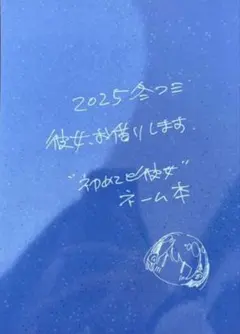 2025 冬コミ
彼女、お借りします
"初めてと彼女"
ネーム本